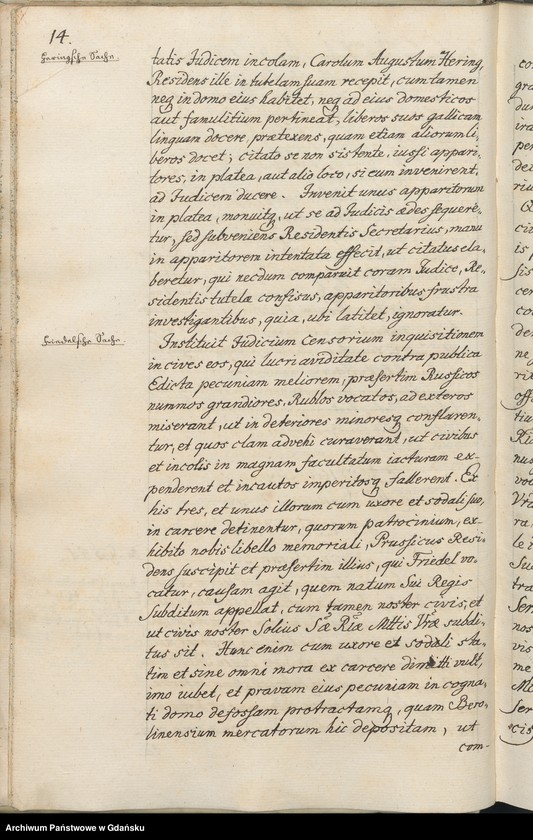 14.
Heringsche Sache.
tatis Judicem incolam, Carolum Augustum Hering
Residens ille in tutelam suam recepit, cum tamen
neq in domo eius habitet, neq ad eius domesticos
aut famulitium pertineat, liberos suos gallicam
linguam docere, prætexens, quam etiam aliorum li-
beros docet; citato se non sistente, iussi appari-
tores, in platea, aut alio loco, si eum invenirent,
ad Judicem ducere. Invenit unus apparitorum
in platea, monuitq, ut se ad Judicis ædes sequere-
tur, sed subveniens Residentis Secretarius, manu
in apparitorem intentata effecit, ut citatus ela-
beretur, qui necdum comparuit coram Judice, Re-
sidentis tutelæ confisus, apparitoribus frustra
investigantibus, quia, ubi latitet, ignoratur.
Friedelsche Sache.
Instituit Judicium Censorium inquisitionem
in cives eos, qui lucri aviditate contra publica
Edicta pecuniam meliorem, præsertim Russicos
nummos grandiores, Rublos vocatos, ad exteros
miserant, ut in deteriores minoresq conflaren-
tur, et quos clam advehi curaverant, ut civibus
et incolis in magnam facultatum iacturam ex-
penderent et incautos imperitosq fallerent. Ex
his tres, et unus illorum cum uxore et sodali suo,
in carcere detinentur, quorum patrocinium, ex-
hibito nobis libello memoriali, Prussicus Resi-
dens suscipit et præsertim illius, qui Friedel vo-
catur, causam agit, quem natum Sui Regis
Subditum appellat, cum tamen noster civis, et
ut civis noster Solius Sæ Riæ Mttis Vræ subdi-
tus sit. Hunc enim cum uxore et sodali sta-
tim et sine omni mora ex carcere dimitti vult,
imo iubet, et pravam eius pecuniam in cogna-
ti domo defossam protractamq, quam Bero-
linensium mercatorum hic depositam, ut
com-
Archiwum Państwowe w Gdańsku